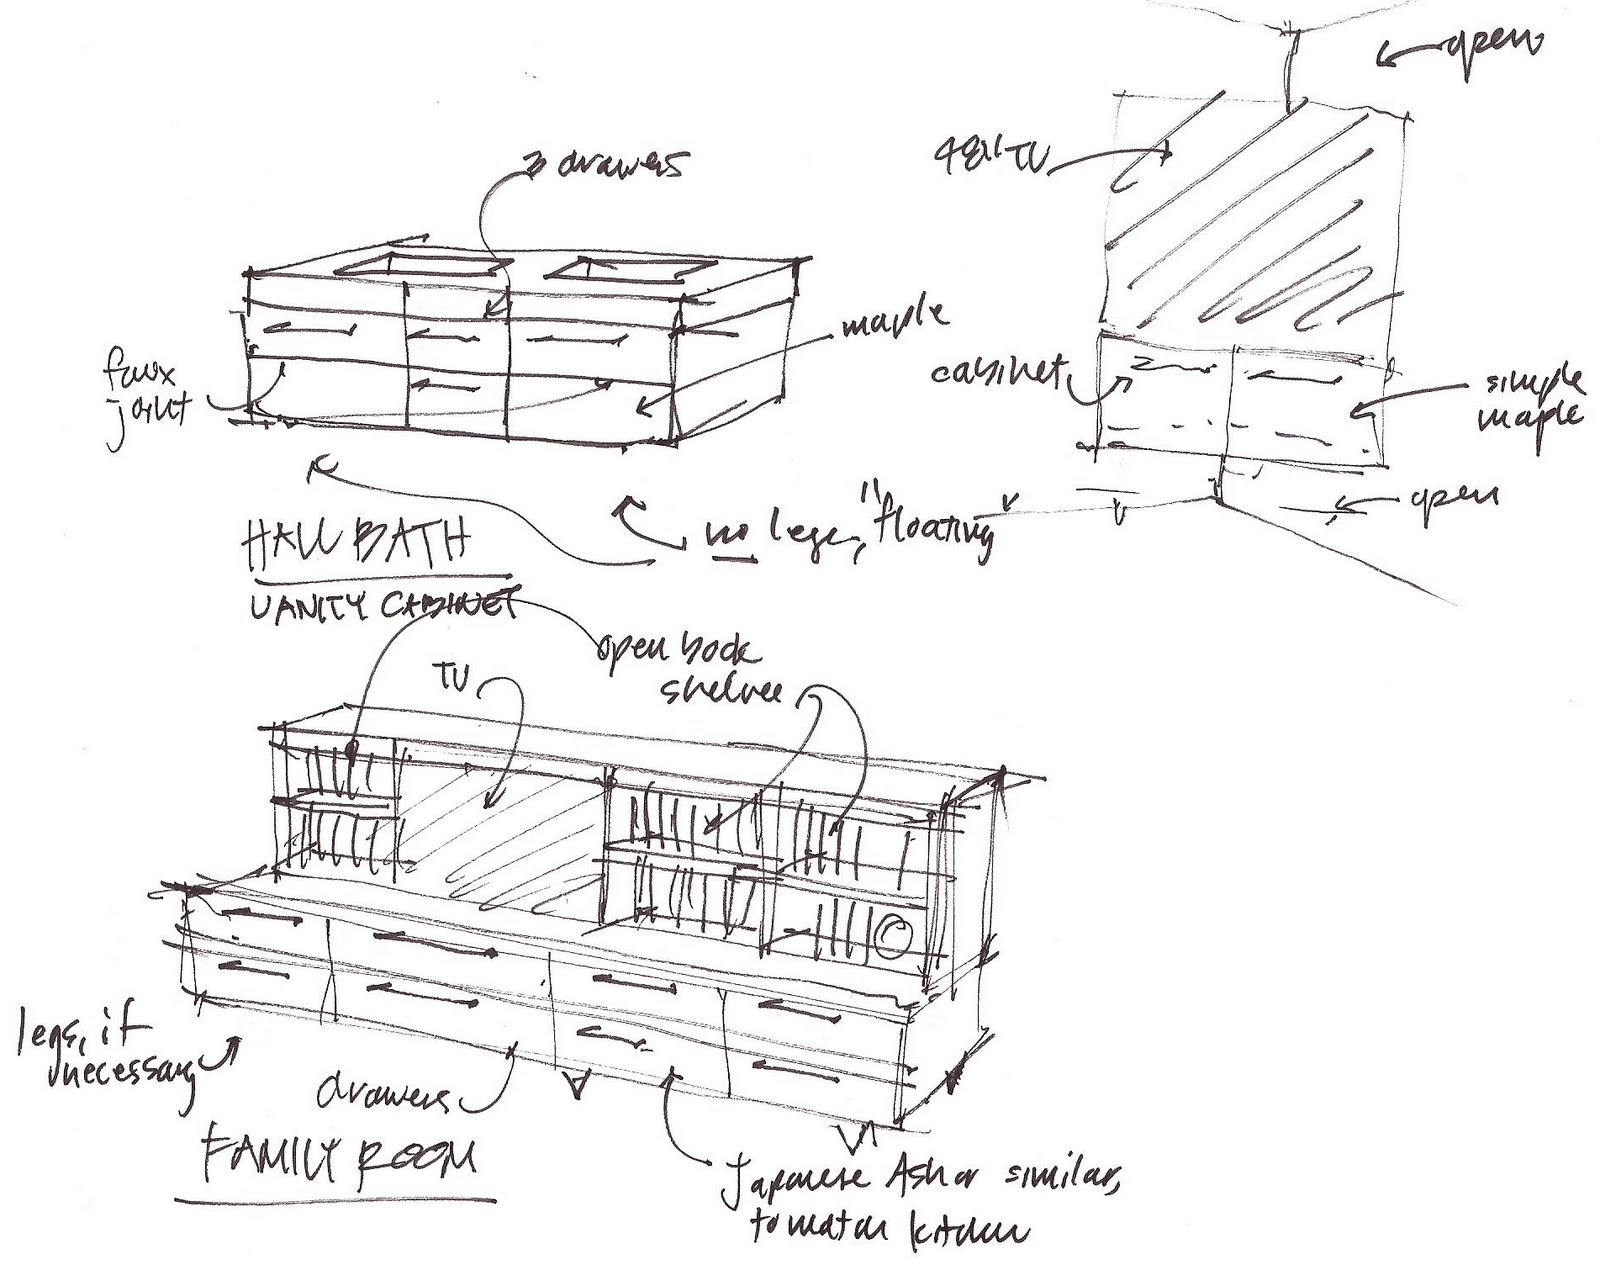 open
48" TV
3 drawers
maple
cabinet
faux
joint
simple
maple
open
no legs, "floating
HALL BATH
VANITY CABINET
open book
shelves
TV
legs, if
necessary
drawers
FAMILY ROOM
Japanese Ash or similar,
to match kitchen